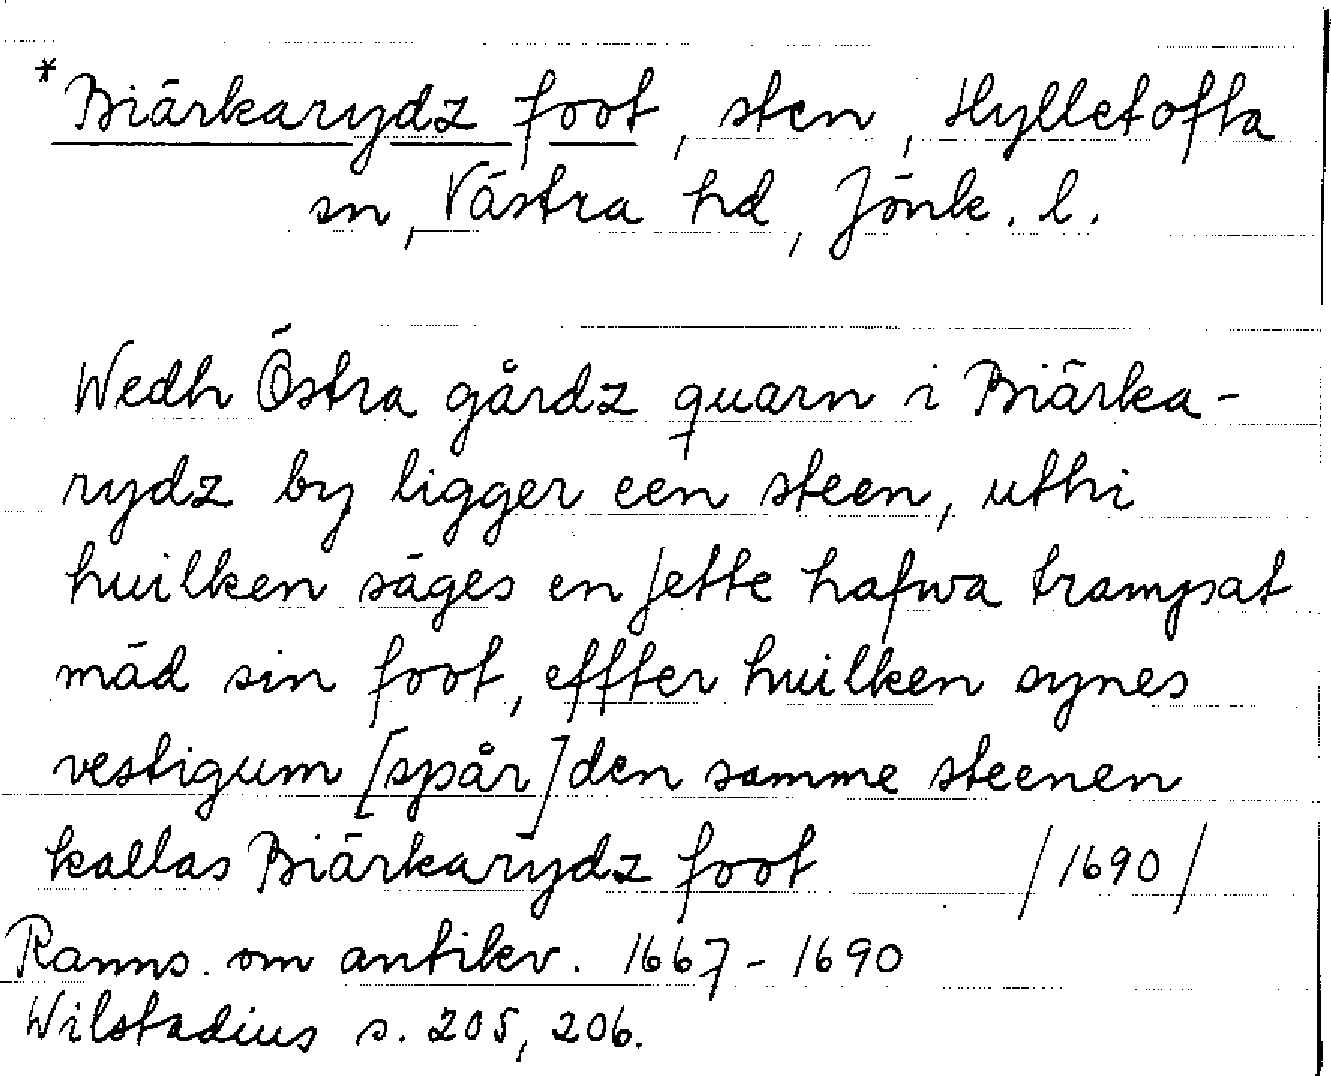 *Biärkarydz foot, sten, Hylletofta
sn, Västra hd, Jönk. l.
Wedh Östra gårdz quarn i Biärka-
rydz by ligger een steen, uthi
huilken säges en jette hafwa trampat
mäd sin foot, effter huilken synes
vestigum [spår] den samme steenen
kallas Biärkarydz foot /1690/
Ranns. om antikv. 1667-1690
Wilstadius s. 205, 206.